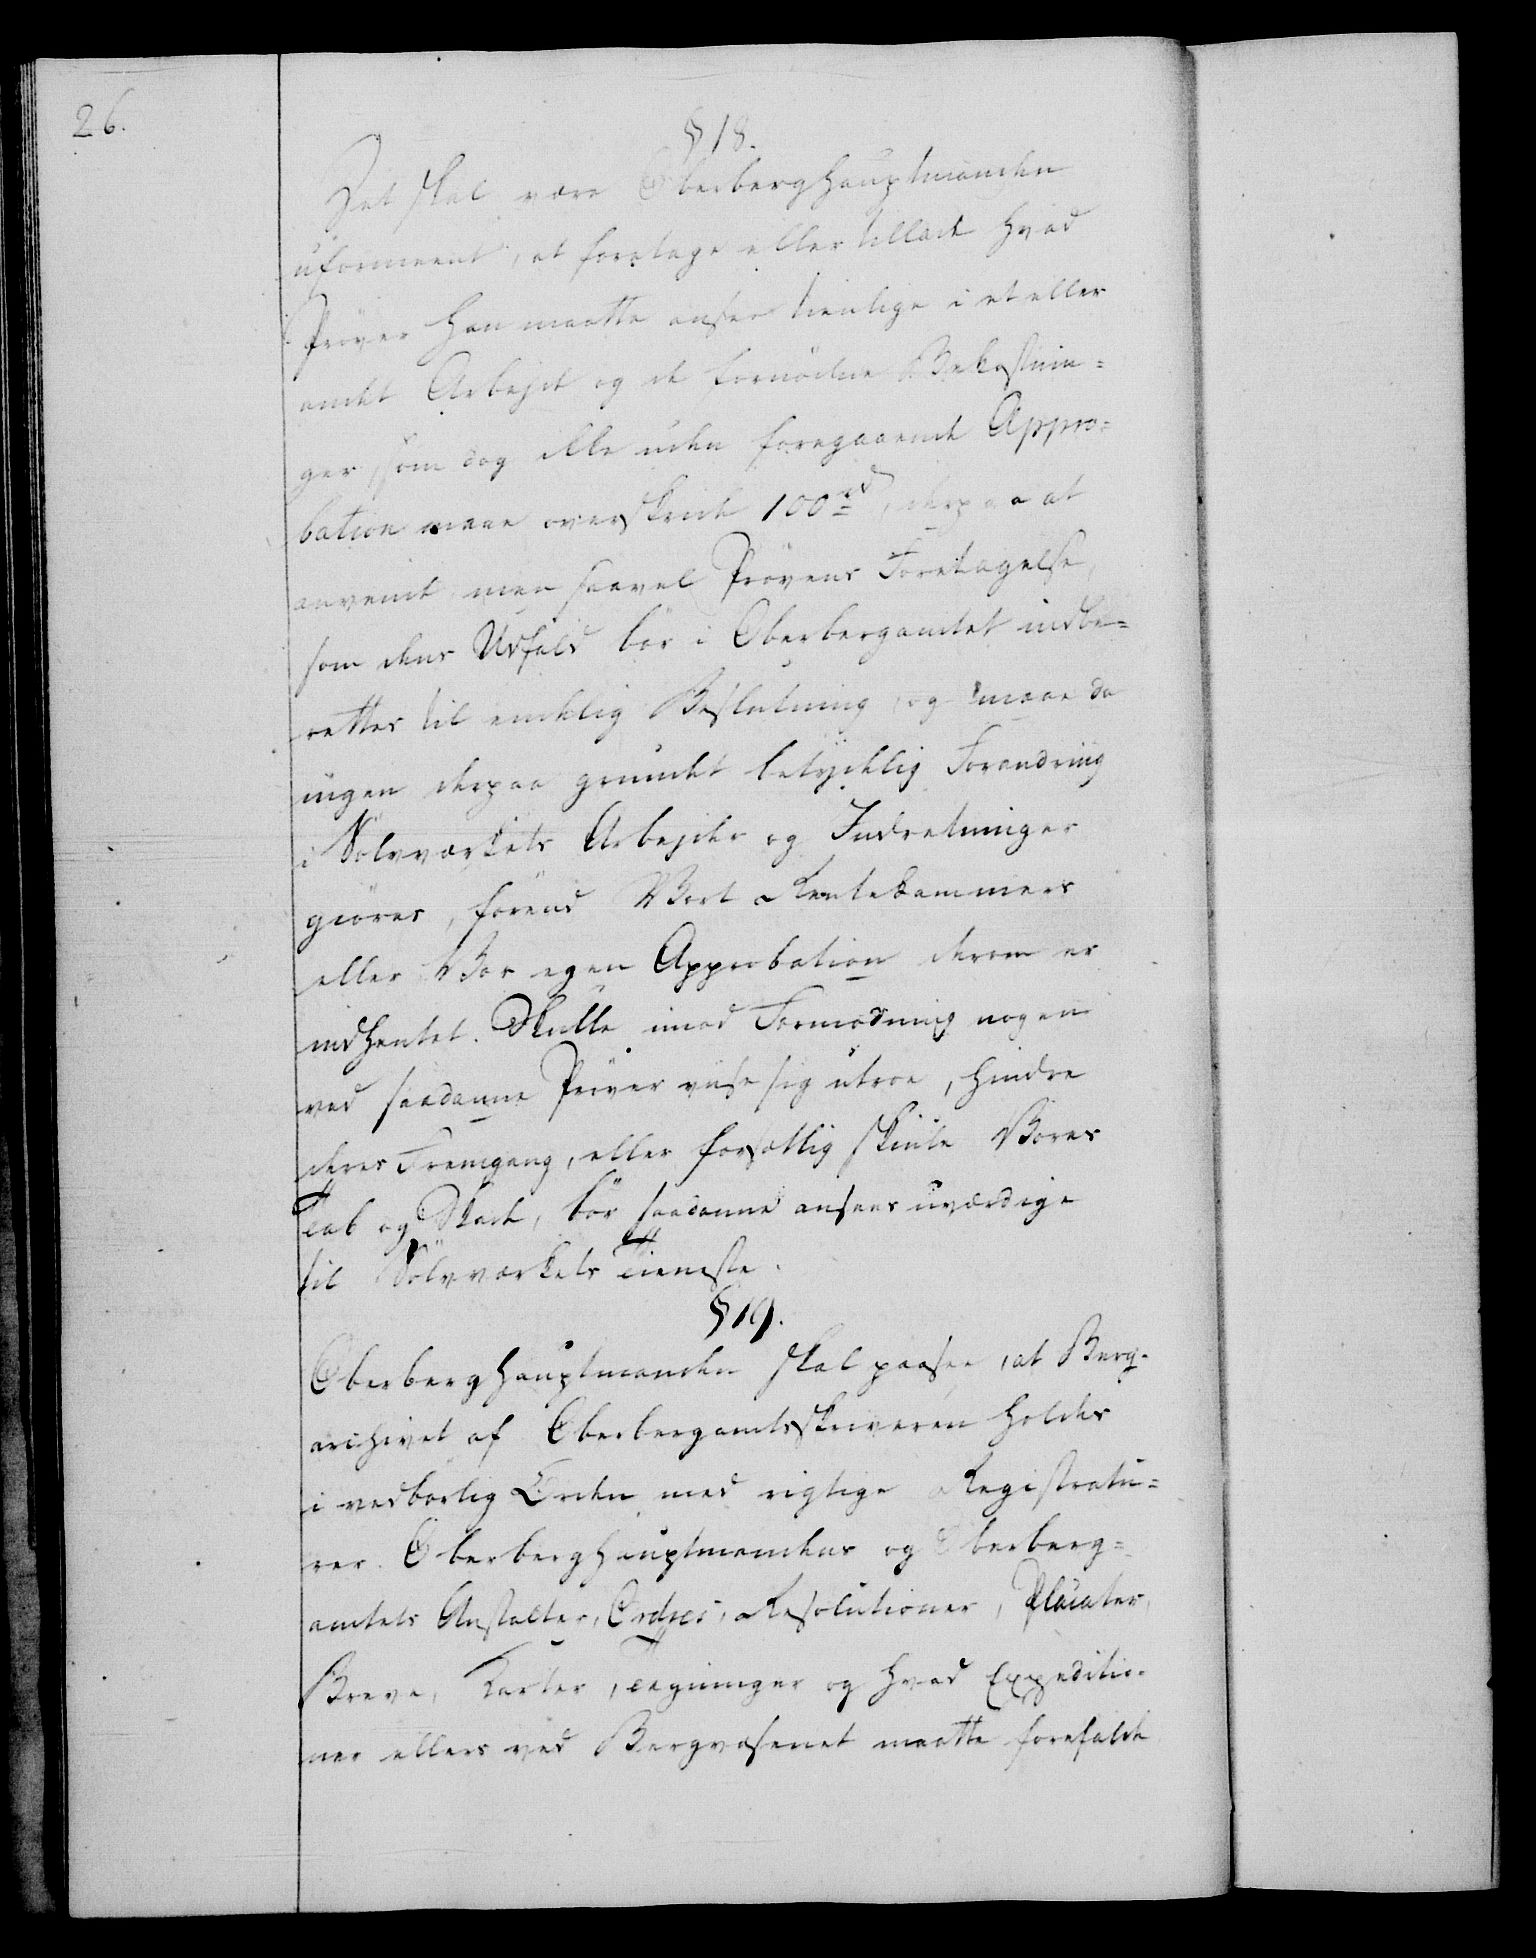 26.
§ 18.
Det skal være Oberberghauptmanden
uformeent, at foretage eller tillade hvad
Prøver han maatte ansee tienlige i et eller
andet Arbejde og de fornødne Bekostnin=
ger, som dog ikke uden foregaaende Appro=
bation maae overskride 100 rd, derpaa at
anvende, men saavel Prøvens Foretagelse,
som dens Udfald bør i Oberbergamtet indbe=
rettes til endelig Beslutning, og maae da
ingen derpaa grundet betydelig Forandring
i Sølvværkets Arbejder og Indretninger
giøres, førend Vort Rentekammers
eller Vor egen Approbation derom er
indhentet. Skulle imod Formodning nogen
ved saadanne Prøver viise sig utroe, hindre
deres Fremgang, eller forsætlig skiule Vores
Tab og Skade, bør saadanne ansees uværdige
til Sølvværkets Tieneste.
§ 19.
Oberberghauptmanden skal paasee, at Berg=
archivet af Oberbergamtsskriveren holdes
i vedbørlig Orden med rigtige Registratu=
rer. Oberberghauptmandens og Oberberg=
amtets Anstalter, Ordres, Resolutioner, Placater,
Breve, Karter, Tegninger og hvad Expeditio=
ner ellers ved Bergvæsenet maatte forefalde